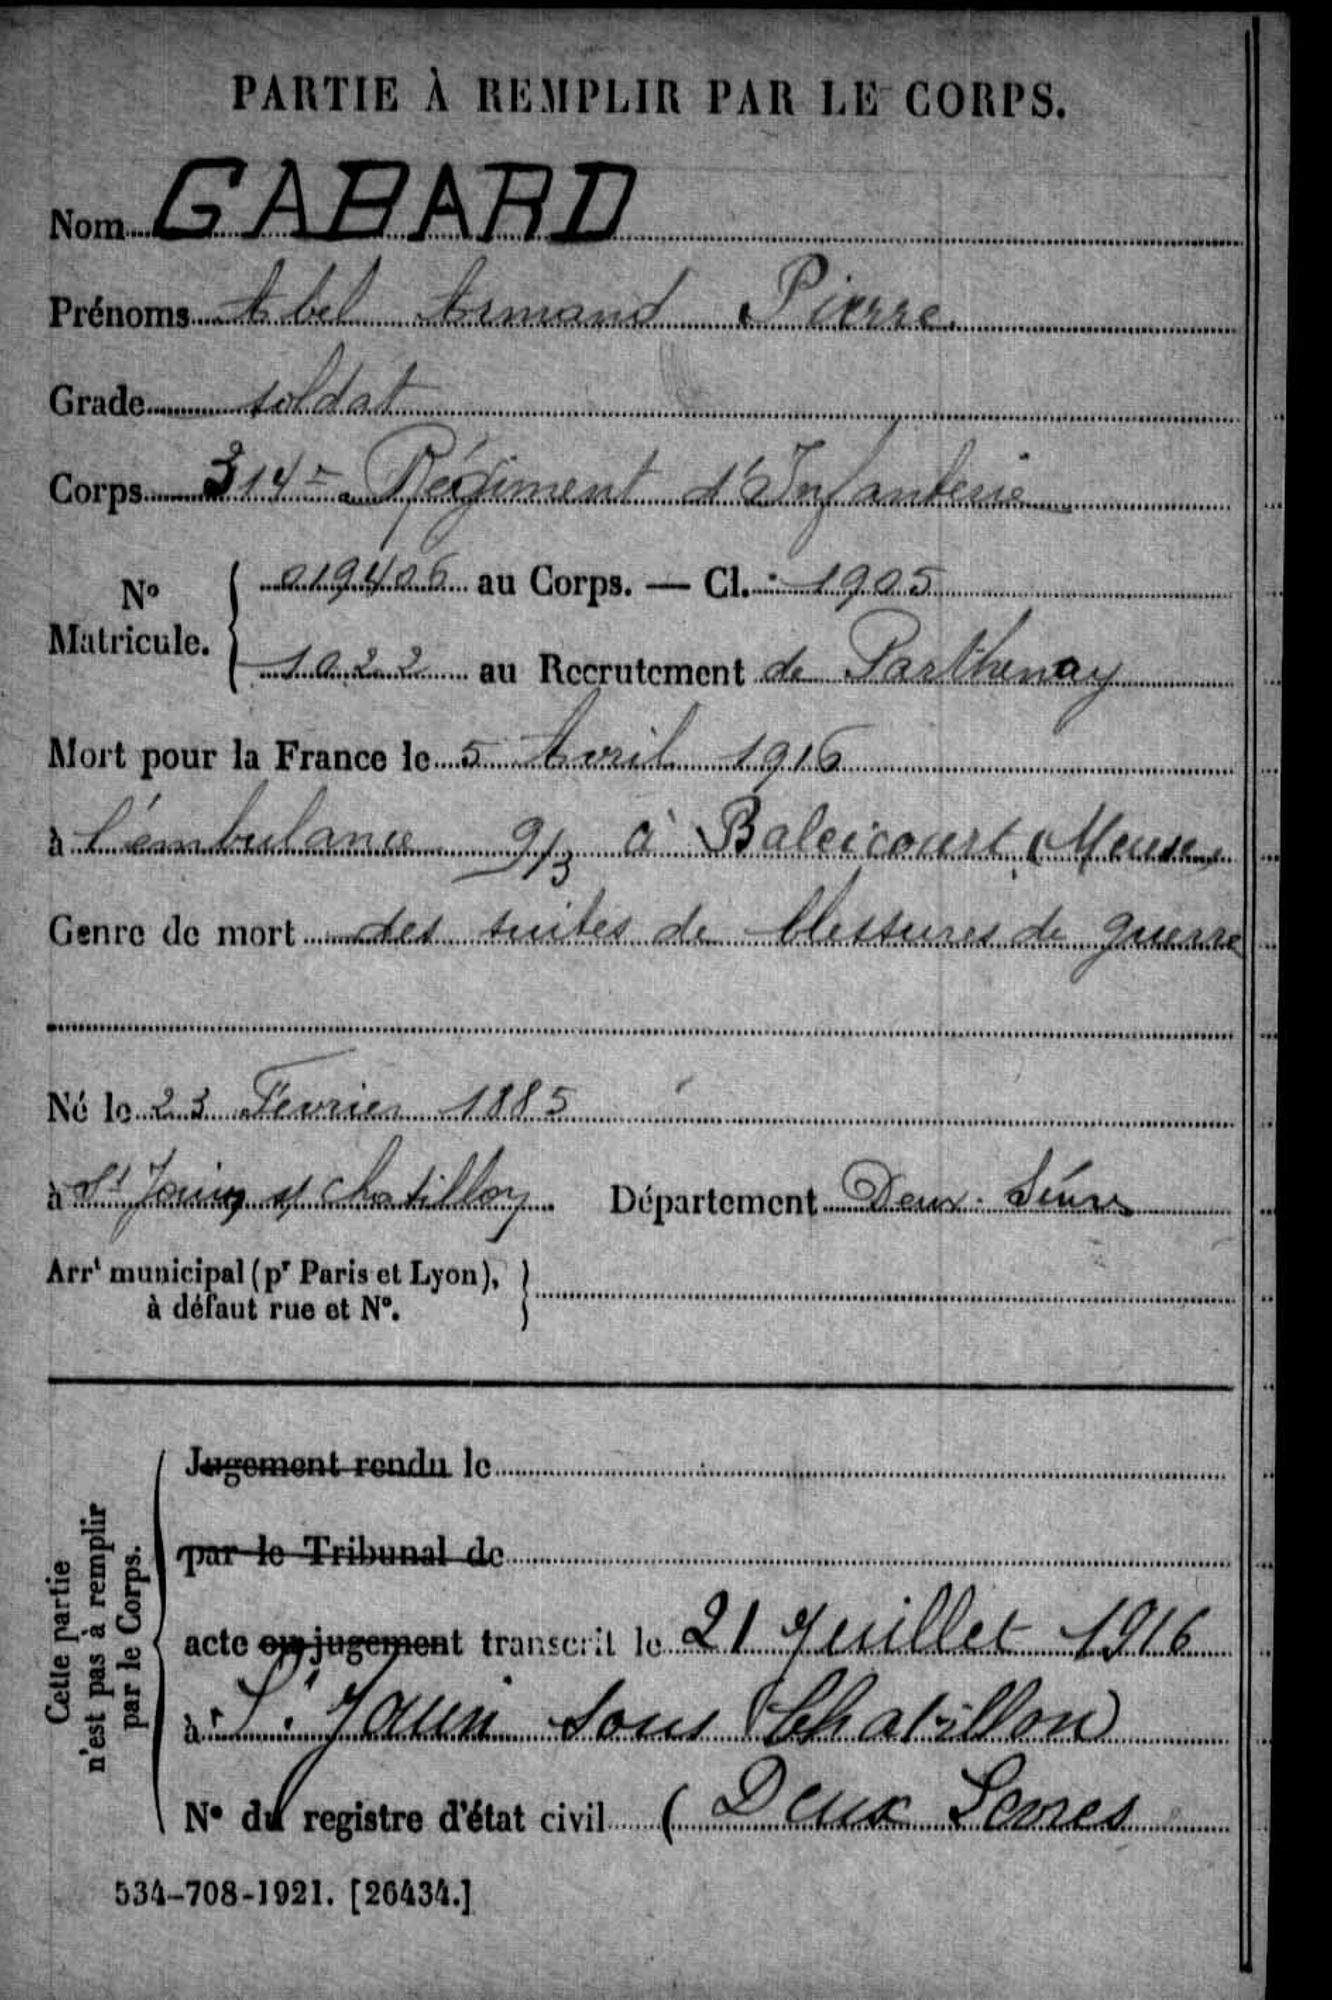 PARTIE À REMPLIR PAR LE CORPS.
Nom GABARD
Prénoms Abel Armand Pierre.
Grade soldat
Corps 314e Régiment d'Infanterie
No Matricule. { 019406 au Corps. — Cl. : 1905
1022 au Recrutement de Parthenay
Mort pour la France le 5 Avril 1916
à l'embulance 9/3 à Baleicourt (Meuse)
Genre de mort des suites de blessures de guerre
Né le 23 Fevrier 1885
à St Jouin s/ Chatillon. Département Deux-Sèvres
Arrt municipal (pr Paris et Lyon), à défaut rue et No. }
Cette partie n'est pas à remplir par le Corps.
Jugement rendu le
par le Tribunal de
acte ou jugement transcrit le 21 Juillet 1916
à St. Jouin sous Chatillon
No du registre d'état civil ( Deux Sevres
534-708-1921. [26434.]